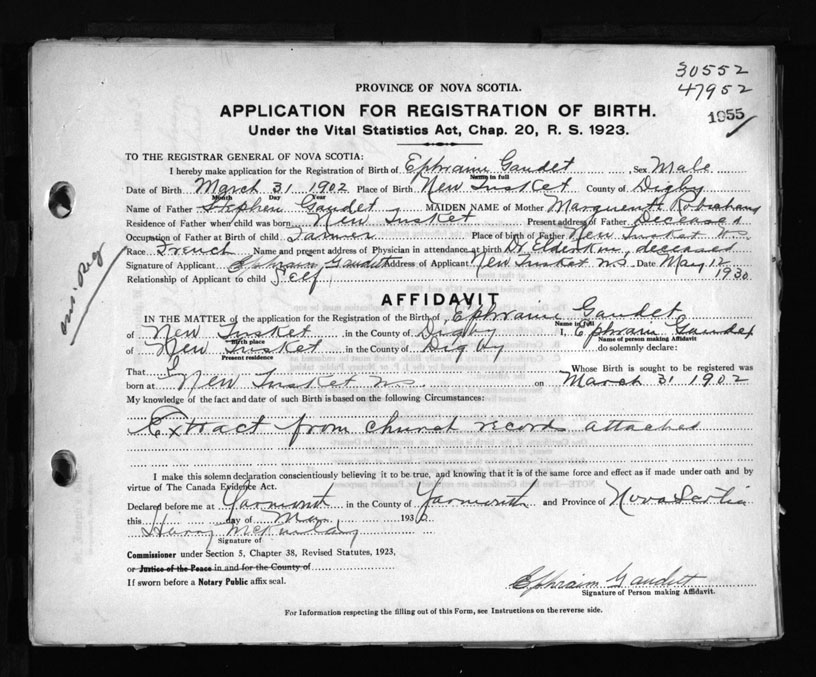 30552
47952
1955
PROVINCE OF NOVA SCOTIA.
APPLICATION FOR REGISTRATION OF BIRTH.
Under the Vital Statistics Act, Chap. 20, R. S. 1923.
TO THE REGISTRAR GENERAL OF NOVA SCOTIA:
I hereby make application for the Registration of Birth of Ephraim Gaudet Sex Male
Name in full
Date of Birth March 31 1902 Place of Birth New Tusket County of Digby
Month Day Year
Name of Father Stephen Gaudet MAIDEN NAME of Mother Marguerite
Residence of Father when child was born New Tusket Present address of Father Deceased
Occupation of Father at Birth of child Farmer Place of birth of Father New Tusket N.S.
Race French Name and present address of Physician in attendance at birth Dr. Elderkin, deceased
Signature of Applicant Ephraim Gaudet Address of Applicant New Tusket N.S. Date May 12 1930
Relationship of Applicant to child Self
AFFIDAVIT
IN THE MATTER of the application for the Registration of the Birth of Ephraim Gaudet
Name in full
of New Tusket in the County of Digby I, Ephraim Gaudet
Birth place Name of person making Affidavit
of New Tusket in the County of Digby do solemnly declare:
Present residence
That I Whose Birth is sought to be registered was
born at New Tusket N.S. on March 31 1902
My knowledge of the fact and date of such Birth is based on the following Circumstances:
Extract from church records attached
I make this solemn declaration conscientiously believing it to be true, and knowing that it is of the same force and effect as if made under oath and by
virtue of The Canada Evidence Act.
Declared before me at Yarmouth in the County of Yarmouth and Province of Nova Scotia
this day of May 1930
Signature of
Commissioner under Section 5, Chapter 38, Revised Statutes, 1923,
or Justice of the Peace in and for the County of
If sworn before a Notary Public affix seal.
Ephraim Gaudet
Signature of Person making Affidavit.
For Information respecting the filling out of this Form, see Instructions on the reverse side.